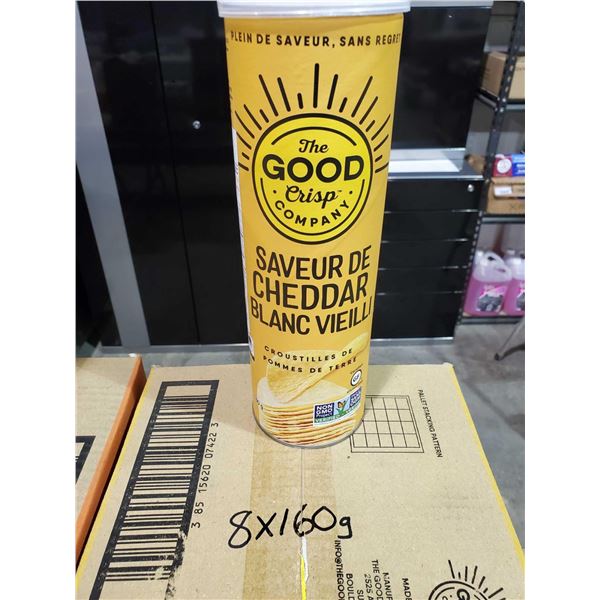 PLEIN DE SAVEUR, SANS REGRET
The
GOOD
Crisp™
COMPANY
SAVEUR DE
CHEDDAR
BLANC VIEILLI
CROUSTILLES DE
POMMES DE TERRE
GF
NON
GMO
VERIFIED
3 85 15620 07422 3
PALLET STACKING PATTERN
8X160g
MADE
MANUF
THE GOO
2525 A
BOUL
INFO@THEGOO
The
GOOD